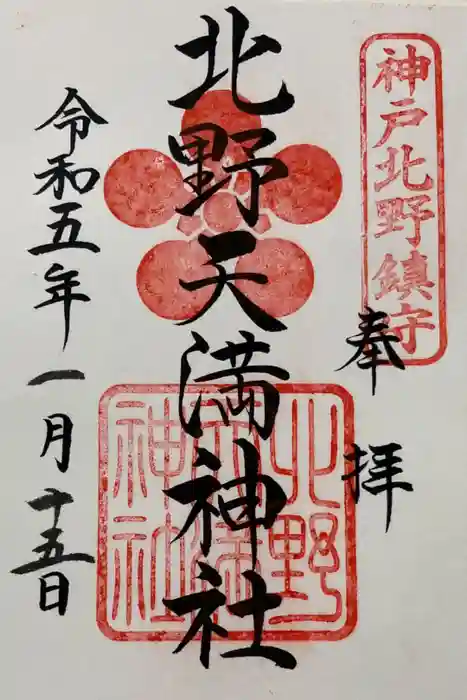 神戸北野鎮守
奉拝
北野天満神社
北野天満神社
令和五年一月十五日